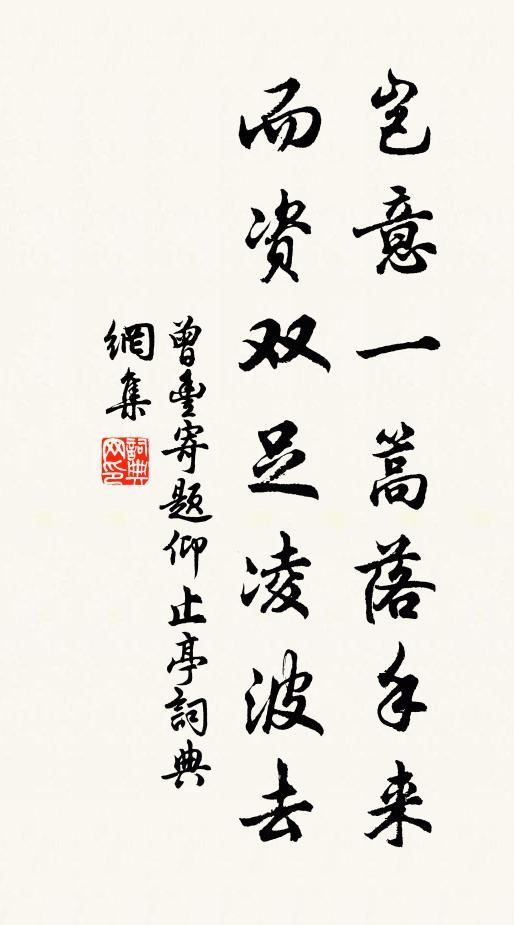 岂意一篙落手来
而资双足凌波去
曾豐寄题仰止亭詞典
網集
詞典网印